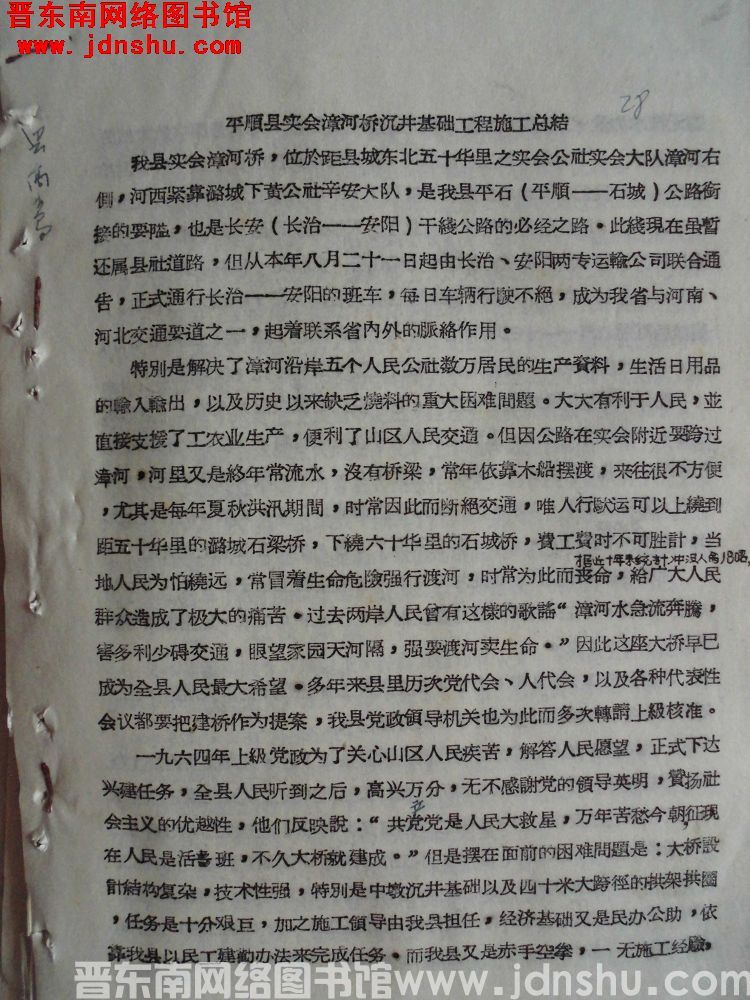 晋东南网络图书馆
www.jdnshu.com
28
平順县实会漳河桥沉井基础工程施工总結
我县实会漳河桥，位於距县城东北五十华里之实会公社实会大队漳河右
侧，河西紧靠潞城下黄公社辛安大队，是我县平石（平順——石城）公路銜
接的要隘，也是长安（长治——安阳）干綫公路的必经之路。此綫現在虽暫
还属县社道路，但从本年八月二十一日起由长治、安阳两专运輸公司联合通
告，正式通行长治——安阳的班车，每日车辆行駛不絕，成为我省与河南、
河北交通要道之一，起着联系省內外的脈絡作用。
特別是解决了漳河沿岸五个人民公社数万居民的生产資料，生活日用品
的輸入輸出，以及历史以来缺乏燒料的重大困难間題。大大有利于人民，並
直接支援了工农业生产，便利了山区人民交通。但因公路在实会附近要跨过
漳河，河里又是終年常流水，沒有桥梁，常年依靠木船摆渡，来往很不方便
，尤其是每年夏秋洪汛期間，时常因此而断絕交通，唯人行獸运可以上繞到
距五十华里的潞城石梁桥，下繞六十华里的石城桥，費工費时不可胜計，当
据近十年来統計冲沒人畜180名，
地人民为怕繞远，常冒着生命危險强行渡河，时常为此而丧命，給广大人民
群众造成了极大的痛苦。过去两岸人民曾有这樣的歌謠“漳河水急流奔騰，
害多利少碍交通，眼望家园天河隔，强要渡河卖生命。”因此这座大桥早已
成为全县人民最大希望。多年来县里历次党代会、人代会，以及各种代表性
会议都要把建桥作为提案，我县党政領导机关也为此而多次轉請上級核准。
一九六四年上級党政为了关心山区人民疾苦，解答人民愿望，正式下达
兴建任务，全县人民听到之后，高兴万分，无不感謝党的領导英明，贊扬社
会主义的优越性，他们反映說：“共产党是人民大救星，万年苦愁今朝征現
在人民是活鲁班，不久大桥就建成。”但是摆在面前的困难問題是：大桥設
計結构复杂，技术性强，特別是中墩沉井基础以及四十米大跨徑的拱架拱圈
，任务是十分艰巨，加之施工領导由我县担任，经济基础又是民办公助，依
靠我县以民工建勤办法来完成任务。而我县又是赤手空拳，一无施工经驗，
晋东南网络图书馆 www.jdnshu.com